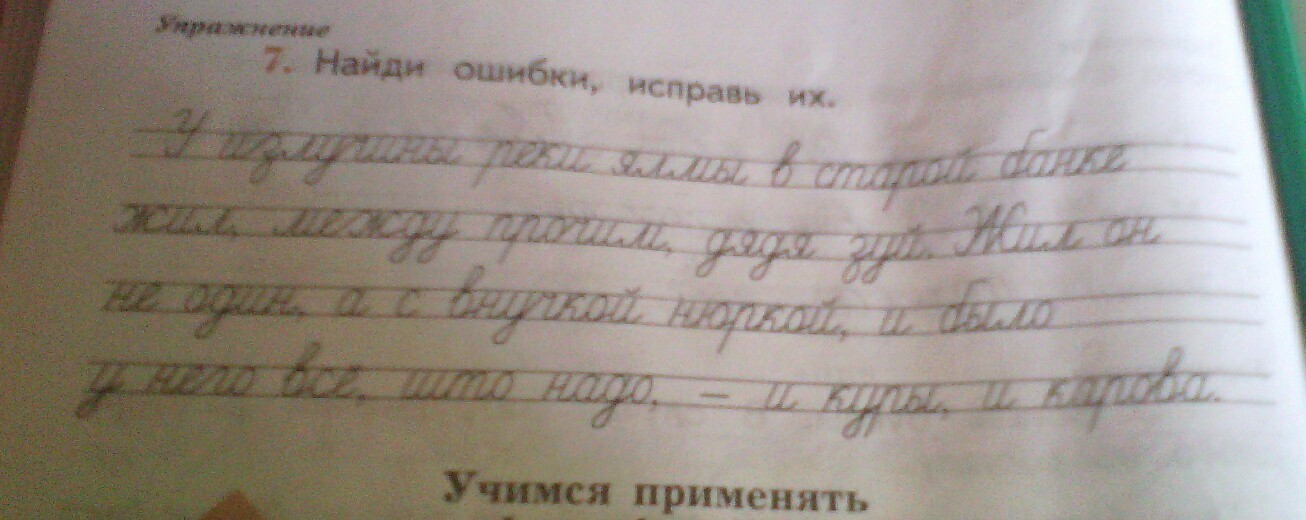 Упражнение
7. Найди ошибки, исправь их.
У излучины реки яллмы в старой банке
жил, между прочим, дядя зуй. Жил он
не один, а с внучкой нюркой, и было
у него всё, што надо, – и куры, и карова.
Учимся применять